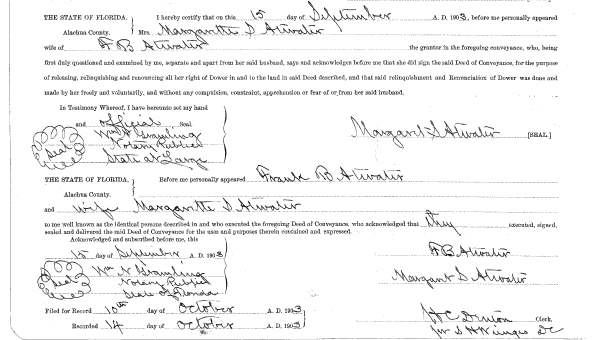 THE STATE OF FLORIDA. } I hereby certify that on this 15 day of September A. D. 1903, before me personally appeared
Alachua County. Mrs. Margarette S Atwater
wife of F B Atwater the grantor in the foregoing conveyance, who, being
first duly questioned and examined by me, separate and apart from her said husband, says and acknowledges before me that she did sign the said Deed of Conveyance, for the purpose
of releasing, relinquishing and renouncing all her right of Dower in and to the land in said Deed described, and that said relinquishment and Renunciation of Dower was done and
made by her freely and voluntarily, and without any compulsion, constraint, apprehension or fear of or from her said husband.
In Testimony Whereof, I have hereunto set my hand
and official Seal
Wm N Grambling
Seal Notary Public Margaret S Atwater [SEAL.]
State at Large
THE STATE OF FLORIDA. } Before me personally appeared Frank B Atwater
Alachua County.
and wife Margarette S Atwater
to me well known as the identical persons described in and who executed the foregoing Deed of Conveyance, who acknowledged that they executed, signed,
sealed and delivered the said Deed of Conveyance for the uses and purposes therein contained and expressed.
Acknowledged and subscribed before me, this
15 day of September A. D. 1903 F B Atwater
Wm N Grambling
Seal Notary Public Margaret S Atwater
State of Florida
Filed for Record 10th day of October A. D. 1903 H C Clerk.
Recorded 14 day of October A. D. 1903 per S H Wienges DC